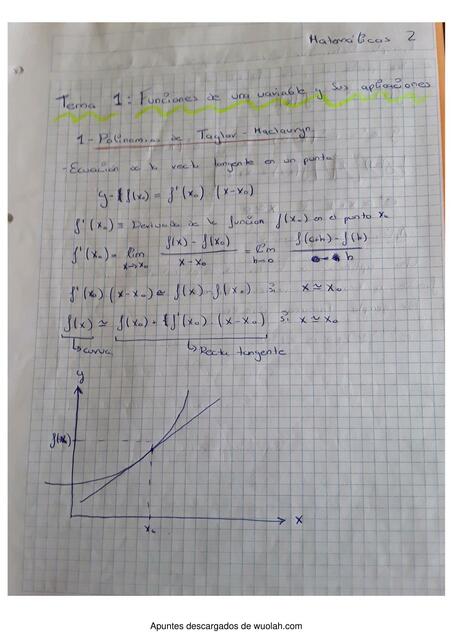 Matemáticas 2
Tema 1: Funciones de una variable y sus aplicaciones
1- Polinomios de Taylor - Maclauryn
- Ecuación de la recta tangente en un punto
y - f(x₀) = f'(x₀) (x-x₀)
f'(x₀) = Derivada de la función f(x) en el punto x₀
f'(x₀) = lim x→x₀ f(x) - f(x₀) / x - x₀ = lim h→0 f(a+h) - f(h) / h
f'(x₀) (x-x₀) ≃ f(x) - f(x₀) si x ≃ x₀
f(x) ≃ f(x₀) + f'(x₀) · (x-x₀) si x ≃ x₀
↳ curva ↳ Recta tangente
y
f(x₀)
x₀
x
Apuntes descargados de wuolah.com